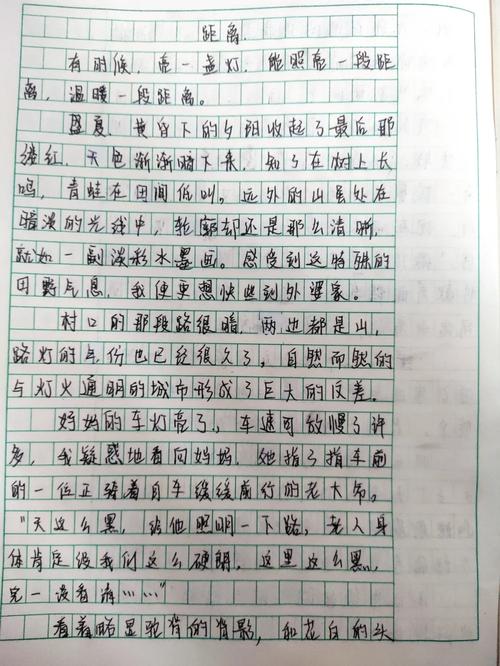 距离
有时候,亮一盏灯,能照亮一段距
离,温暖一段距离。
盛夏,黄昏下的夕阳收起了最后那
缕红,天色渐渐暗下来,知了在树上长
鸣,青蛙在田间低叫。远处的山虽处在
暗淡的光线中,轮廓却还是那么清晰,
就如一副淡彩水墨画。感受到这特殊的
田野气息,我便更想快些到外婆家。
村口的那段路很暗,两边都是山,
路灯的年份也已经很久了,自然而然的
与灯火通明的城市形成了巨大的反差。
妈妈的车灯亮了,车速可放慢了许
多,我疑惑地看向妈妈,她指了指车前
的一位正骑着自车缓缓前行的老大爷。
“天这么黑,给他照明一下路,老人身
体肯定没我们这么硬朗,这里这么黑,
完一没看清……”
看着略显驼背的背影,和花白的头